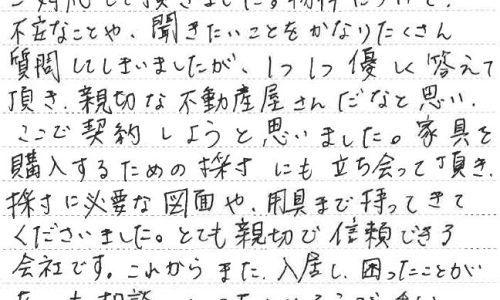 ご対応して頂きました。物件について、
不安なことや、聞きたいことをかなりたくさん
質問してしまいましたが、1つ1つ優しく答えて
頂き、親切な不動産屋さんだなと思い、
ここで契約しようと思いました。家具を
購入するための採寸にも立ち会って頂き、
採寸に必要な図面や、用具まで持ってきて
くださいました。とても親切で信頼できる
会社です。これからまた、入居し、困ったことが
相談